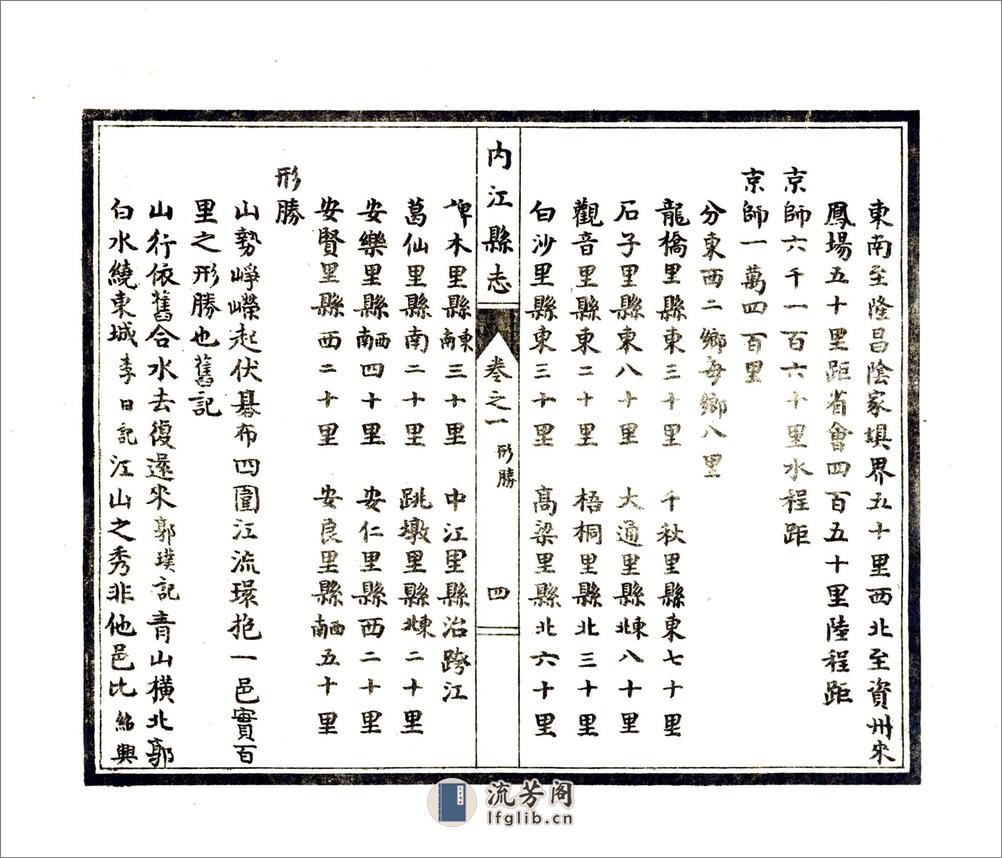 東南至隆昌陰家埧界五十里西北至資州來
鳳場五十里距省會四百五十里陸程距
京師六千一百六十里水程距
京師一萬四百里
分東西二鄉每鄉八里
龍橋里縣東三十里　千秋里縣東七十里
石子里縣東八十里　大通里縣東北八十里
觀音里縣東二十里　梧桐里縣北三十里
白沙里縣東三十里　高梁里縣北六十里
內江縣志
卷之一
形勝
四
椑木里縣東南三十里　中江里縣治跨江
葛仙里縣南二十里　跳墩里縣東北二十里
安樂里縣西南四十里　安仁里縣西二十里
安賢里縣西二十里　安良里縣西南五十里
形勝
山勢崢嶸起伏碁布四圍江流環抱一邑實百
里之形勝也舊記
山行依舊合水去復還來郭璞記青山橫北郭
白水繞東城李日記江山之秀非他邑比紹興
流芳阁
lfglib.cn